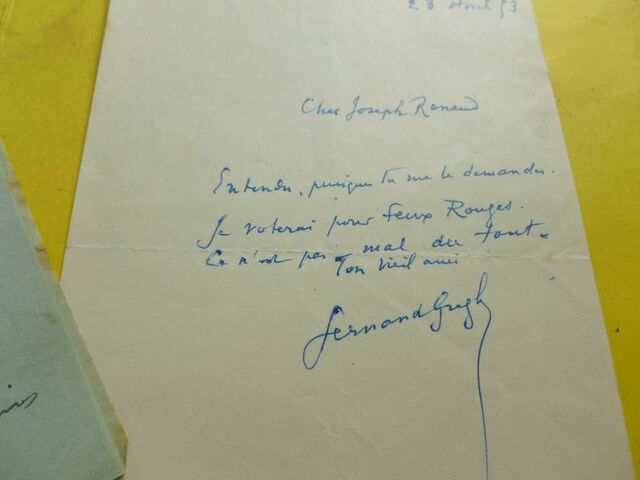 23 Avril 53
Cher Joseph Renaud
Entendu, puisque tu me le demandes.
Je voterai pour Feux Rouges.
Ce n'est pas mal du tout.
Ton vieil ami
Fernand Gregh